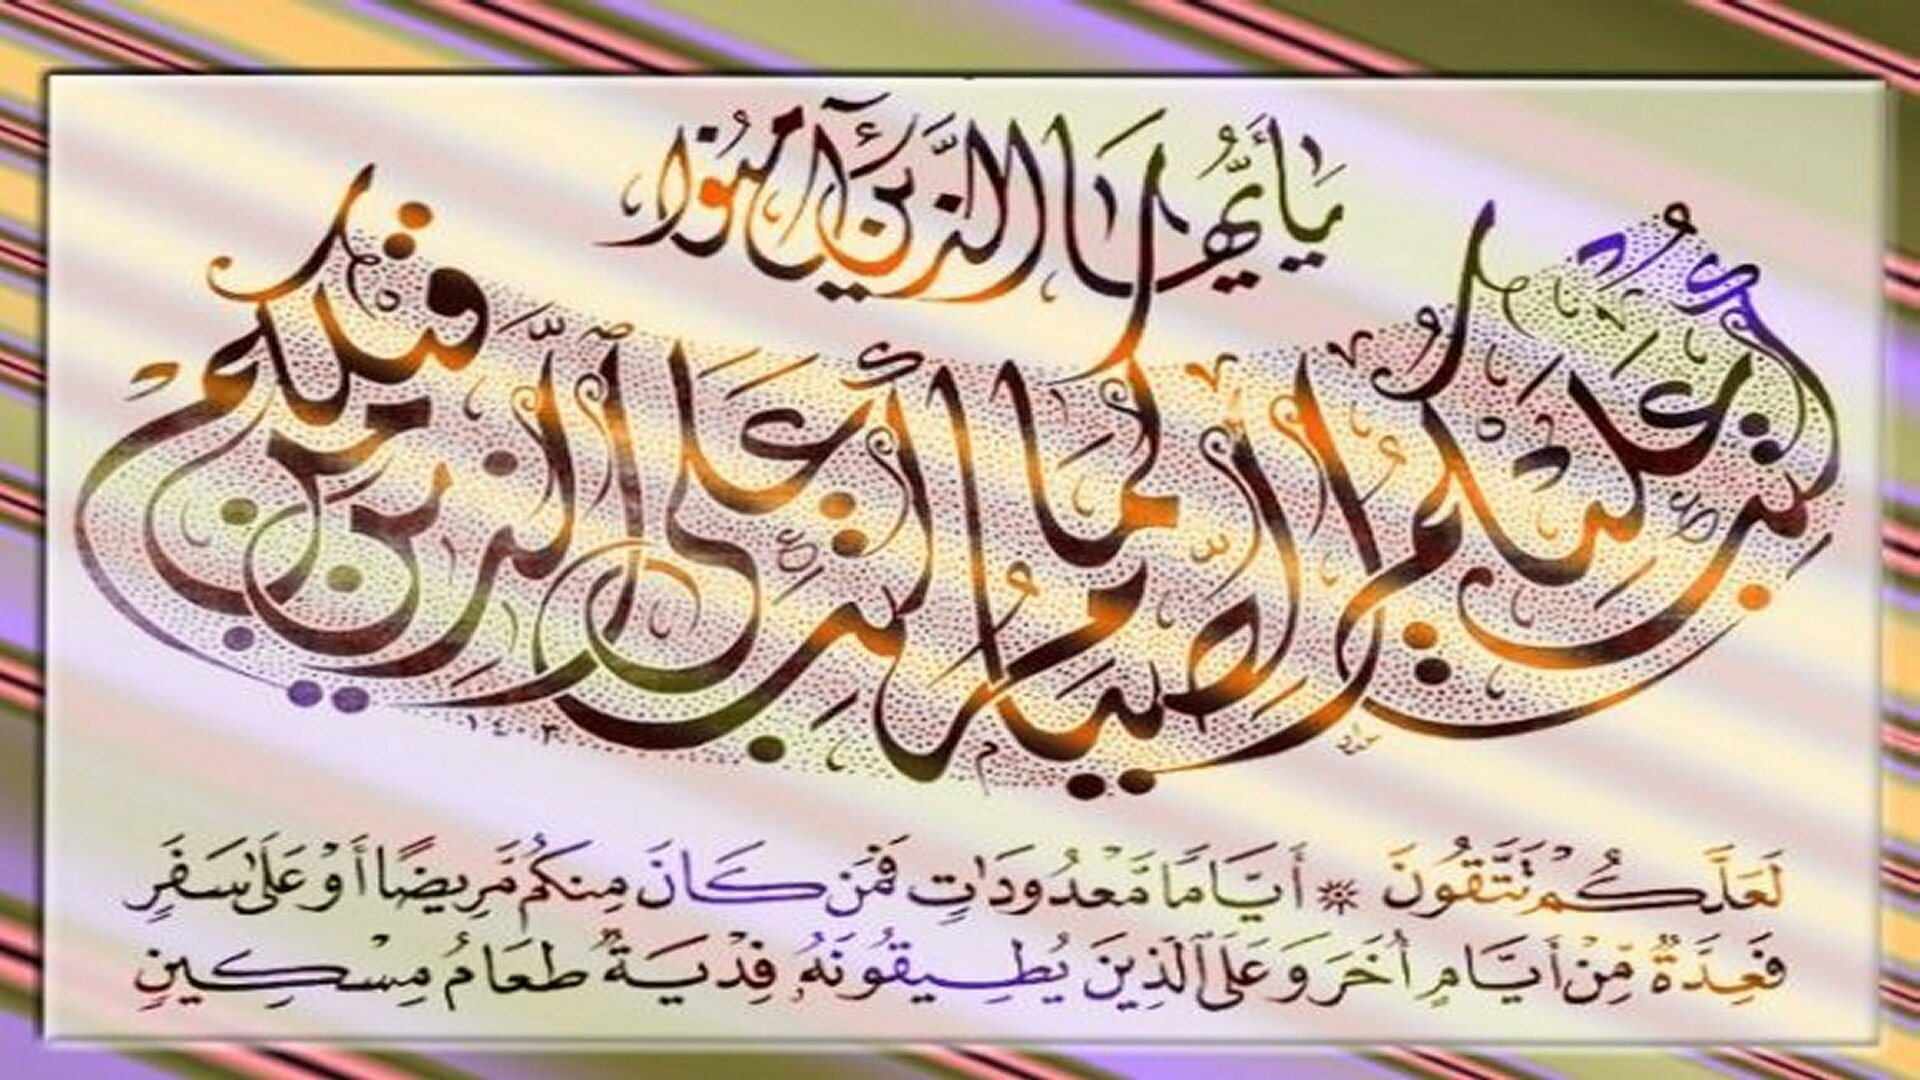 يَٰأَيُّهَا الَّذِينَ آمَنُوا
كُتِبَ عَلَيْكُمُ الصِّيَامُ كَمَا كُتِبَ عَلَى الَّذِينَ مِن قَبْلِكُمْ
١٤٠٣
لَعَلَّكُمْ تَتَّقُونَ ۞ أَيَّامًا مَّعْدُودَاتٍ فَمَن كَانَ مِنكُم مَّرِيضًا أَوْ عَلَىٰ سَفَرٍ
فَعِدَّةٌ مِّنْ أَيَّامٍ أُخَرَ وَعَلَى الَّذِينَ يُطِيقُونَهُ فِدْيَةٌ طَعَامُ مِسْكِينٍ